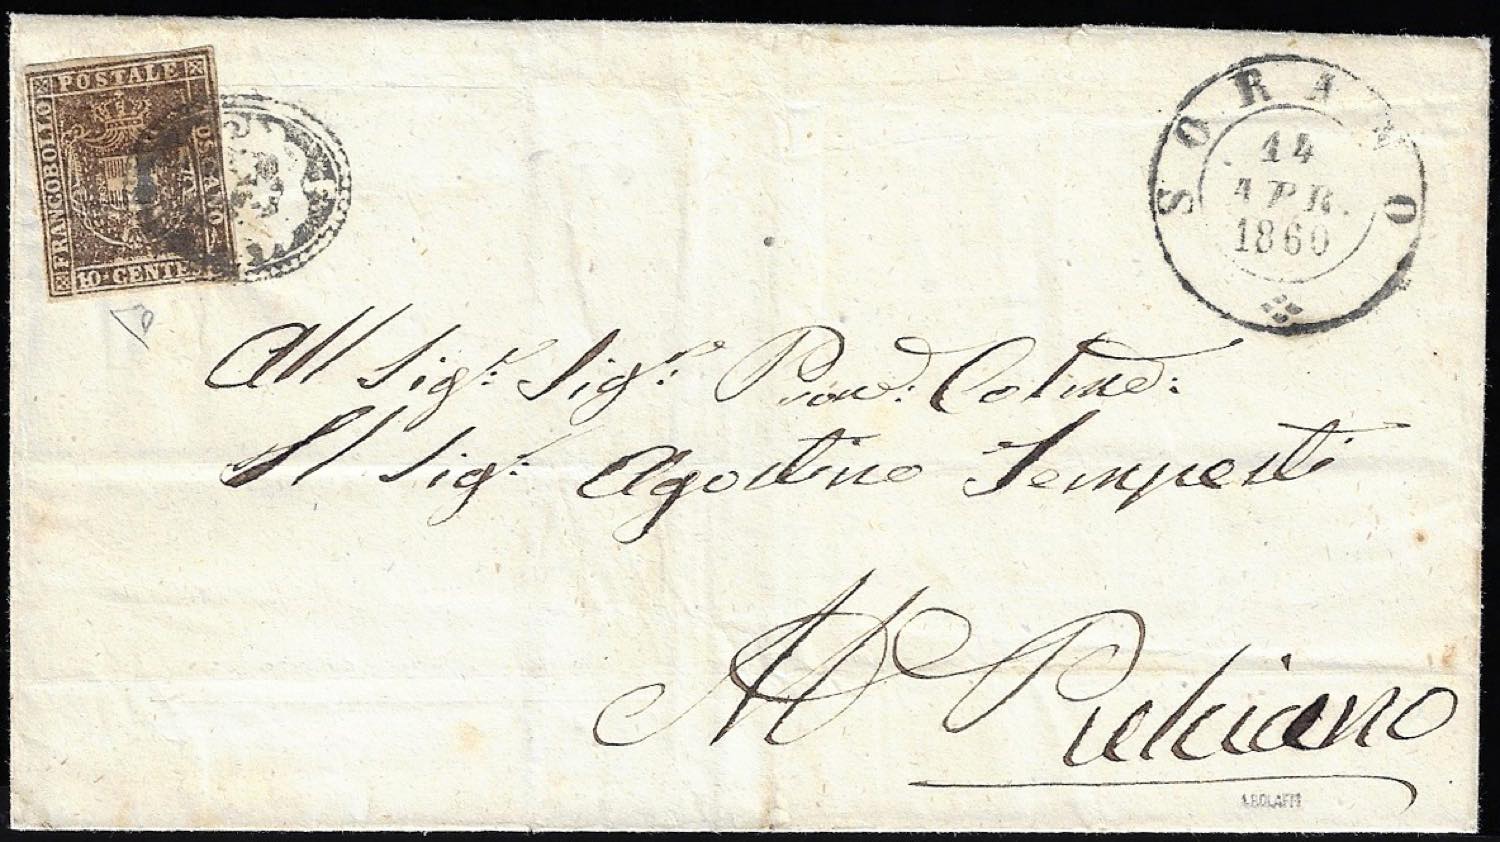 FRANCOBOLLO POSTALE TOSCANO
10 CENTES
SORANO
14
APR.
1860
All Sigr. Sigr. Prov. Colmo:
Il Sigr. Agostino Tempesti
M Pulciano
A.BOLAFFI